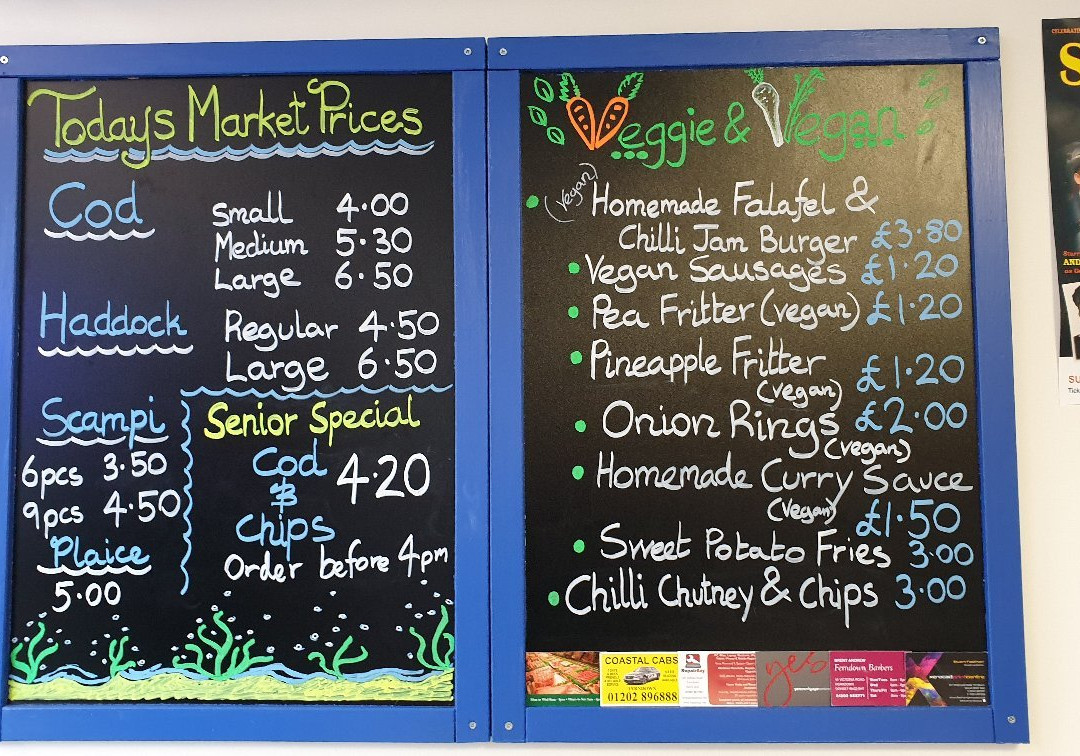 Todays Market Prices
Cod
Small 4.00
Medium 5.30
Large 6.50
Haddock
Regular 4.50
Large 6.50
Scampi
6pcs 3.50
9pcs 4.50
Plaice
5.00
Senior Special
Cod
&
Chips
4.20
Order before 4pm
Veggie & Vegan
(vegan) Homemade Falafel &
Chilli Jam Burger £3.80
Vegan Sausages £1.20
Pea Fritter (vegan) £1.20
Pineapple Fritter
(vegan) £1.20
Onion Rings £2.00
(vegan)
Homemade Curry Sauce
(vegan) £1.50
Sweet Potato Fries 3.00
Chilli Chutney & Chips 3.00
COASTAL CABS
01202 896888
yes
Ferndown Barbers
S